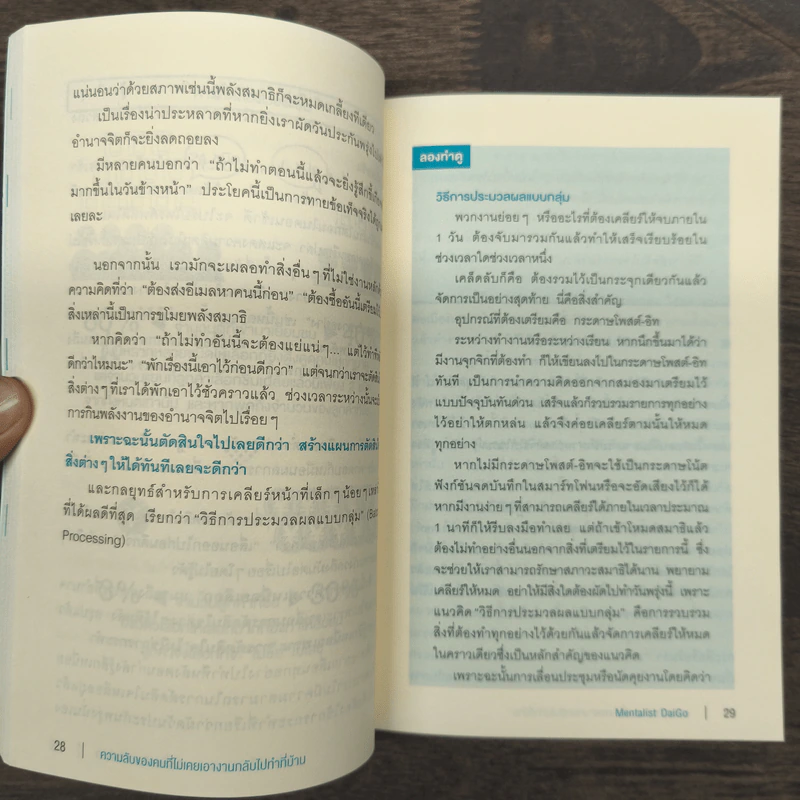 แน่นอนว่าด้วยสภาพเช่นนี้พลังสมาธิก็จะหมดเกลี้ยงทีเดียว
เป็นเรื่องน่าประหลาดที่หากยิ่งเราผัดวันประกันพรุ่ง
อำนาจจิตก็จะยิ่งลดถอยลง
มีหลายคนบอกว่า “ถ้าไม่ทำตอนนี้แล้วจะยิ่งรู้สึก
มากขึ้นในวันข้างหน้า” ประโยคนี้เป็นการทายข้อเท็จจริงได้
เลยละ
นอกจากนั้น เรามักจะเผลอทำสิ่งอื่นๆ ที่ไม่ใช่งานหลัก
ความคิดที่ว่า “ต้องส่งอีเมลหาคนนี้ก่อน” “ต้องซื้ออันนี้เตรียมไว้
สิ่งเหล่านี้เป็นการขโมยพลังสมาธิ
หากคิดว่า “ถ้าไม่ทำอันนี้จะต้องแย่แน่ๆ... แต่ไว้ทำ
ดีกว่าไหมนะ” “พักเรื่องนี้เอาไว้ก่อนดีกว่า” แต่จนกว่าเราจะตัดสิน
สิ่งต่างๆ ที่เราได้พักเอาไว้ชั่วคราวแล้ว ช่วงเวลาระหว่างนั้นจะ
การกินพลังงานของอำนาจจิตไปเรื่อยๆ
เพราะฉะนั้นตัดสินใจไปเลยดีกว่า สร้างแผนการตัดสิน
สิ่งต่างๆ ให้ได้ทันทีเลยจะดีกว่า
และกลยุทธ์สำหรับการเคลียร์หน้าที่เล็กๆ น้อยๆ
ที่ได้ผลดีที่สุด เรียกว่า “วิธีการประมวลผลแบบกลุ่ม”
Processing)
28 | ความลับของคนที่ไม่เคยเอางานกลับไปทำที่บ้าน
ลองทำดู
วิธีการประมวลผลแบบกลุ่ม
พวกงานย่อยๆ หรืออะไรที่ต้องเคลียร์ให้จบภายใน
1 วัน ต้องจับมารวมกันแล้วทำให้เสร็จเรียบร้อยใน
ช่วงเวลาใดช่วงเวลาหนึ่ง
เคล็ดลับก็คือ ต้องรวมไว้เป็นกระจุกเดียวกันแล้ว
จัดการเป็นอย่างสุดท้าย นี่คือสิ่งสำคัญ
อุปกรณ์ที่ต้องเตรียมคือ กระดาษโพสต์-อิท
ระหว่างทำงานหรือระหว่างเรียน หากนึกขึ้นมาได้ว่า
มีงานจุกจิกที่ต้องทำ ก็ให้เขียนลงไปในกระดาษโพสต์-อิท
ทันที เป็นการนำความคิดออกจากสมองมาเตรียมไว้
แบบปัจจุบันทันด่วน เสร็จแล้วก็รวบรวมรายการทุกอย่าง
ไว้อย่าให้ตกหล่น แล้วจึงค่อยเคลียร์ตามนั้นให้หมด
ทุกอย่าง
หากไม่มีกระดาษโพสต์-อิทจะใช้เป็นกระดาษโน้ต
ฟังก์ชันจดบันทึกในสมาร์ทโฟนหรือจะอัดเสียงไว้ก็ได้
หากมีงานง่ายๆ ที่สามารถเคลียร์ได้ภายในเวลาประมาณ
1 นาทีก็ให้รีบลงมือทำเลย แต่ถ้าเข้าโหมดสมาธิแล้ว
ต้องไม่ทำอย่างอื่นนอกจากสิ่งที่เตรียมไว้ในรายการนี้ ซึ่ง
จะช่วยให้เราสามารถรักษาสภาวะสมาธิได้นาน พยายาม
เคลียร์ให้หมด อย่าให้มีสิ่งใดต้องผัดไปทำวันพรุ่งนี้ เพราะ
แนวคิด “วิธีการประมวลผลแบบกลุ่ม” คือการรวบรวม
สิ่งที่ต้องทำทุกอย่างไว้ด้วยกันแล้วจัดการเคลียร์ให้หมด
ในคราวเดียวซึ่งเป็นหลักสำคัญของแนวคิด
เพราะฉะนั้นการเลื่อนประชุมหรือนัดคุยงานโดยคิดว่า
Mentalist DaiGo | 29